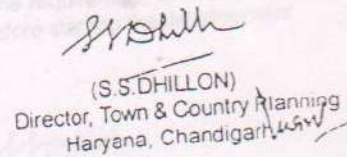 SSDhill
(S.S.DHILLON)
Director, Town & Country Planning
Haryana, Chandigarh